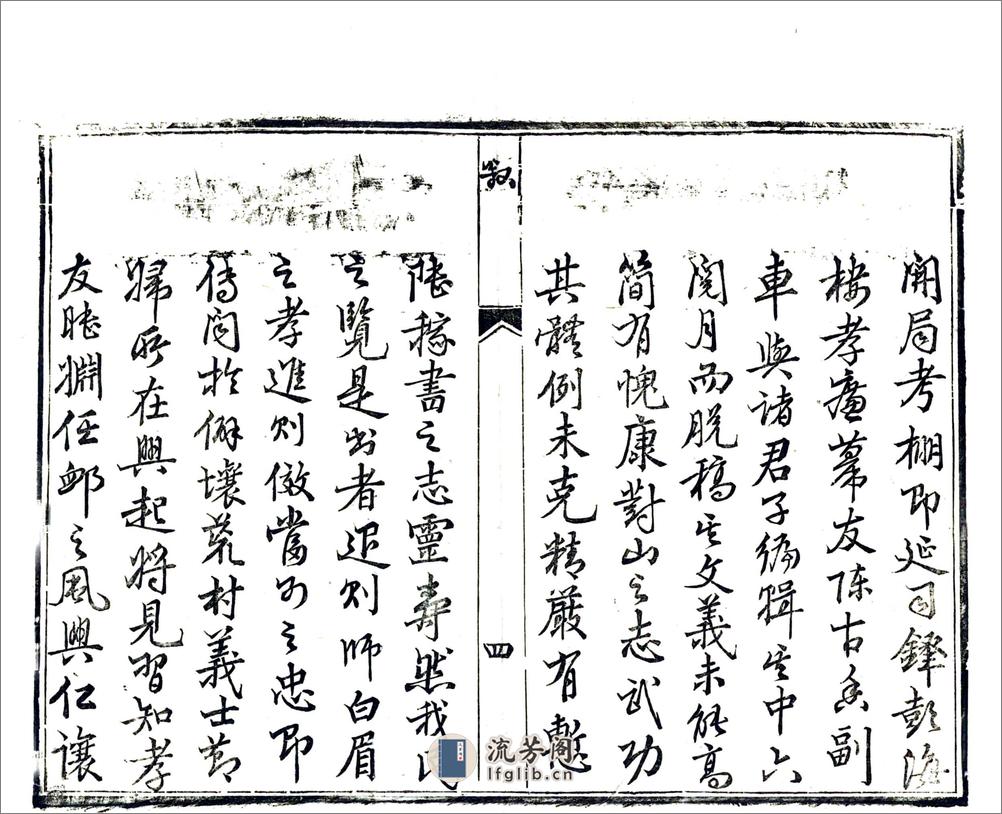 開局考棚即延司鐸彭海
樓孝廉幕友陳古香副
車與諸君子編輯其中六
閱月而脫稿其文義未能高
簡有愧康對山之志武功
其體例未克精嚴有慙
陸稼書之志靈壽然我
之覽是書者退則師白眉
之孝進則倣當陽之忠即
傳聞於僻壤荒村義士節
婦所在興起將見習知孝
友睦婣任卹之風興仁讓
叙
四
流芳阁
lfglib.cn